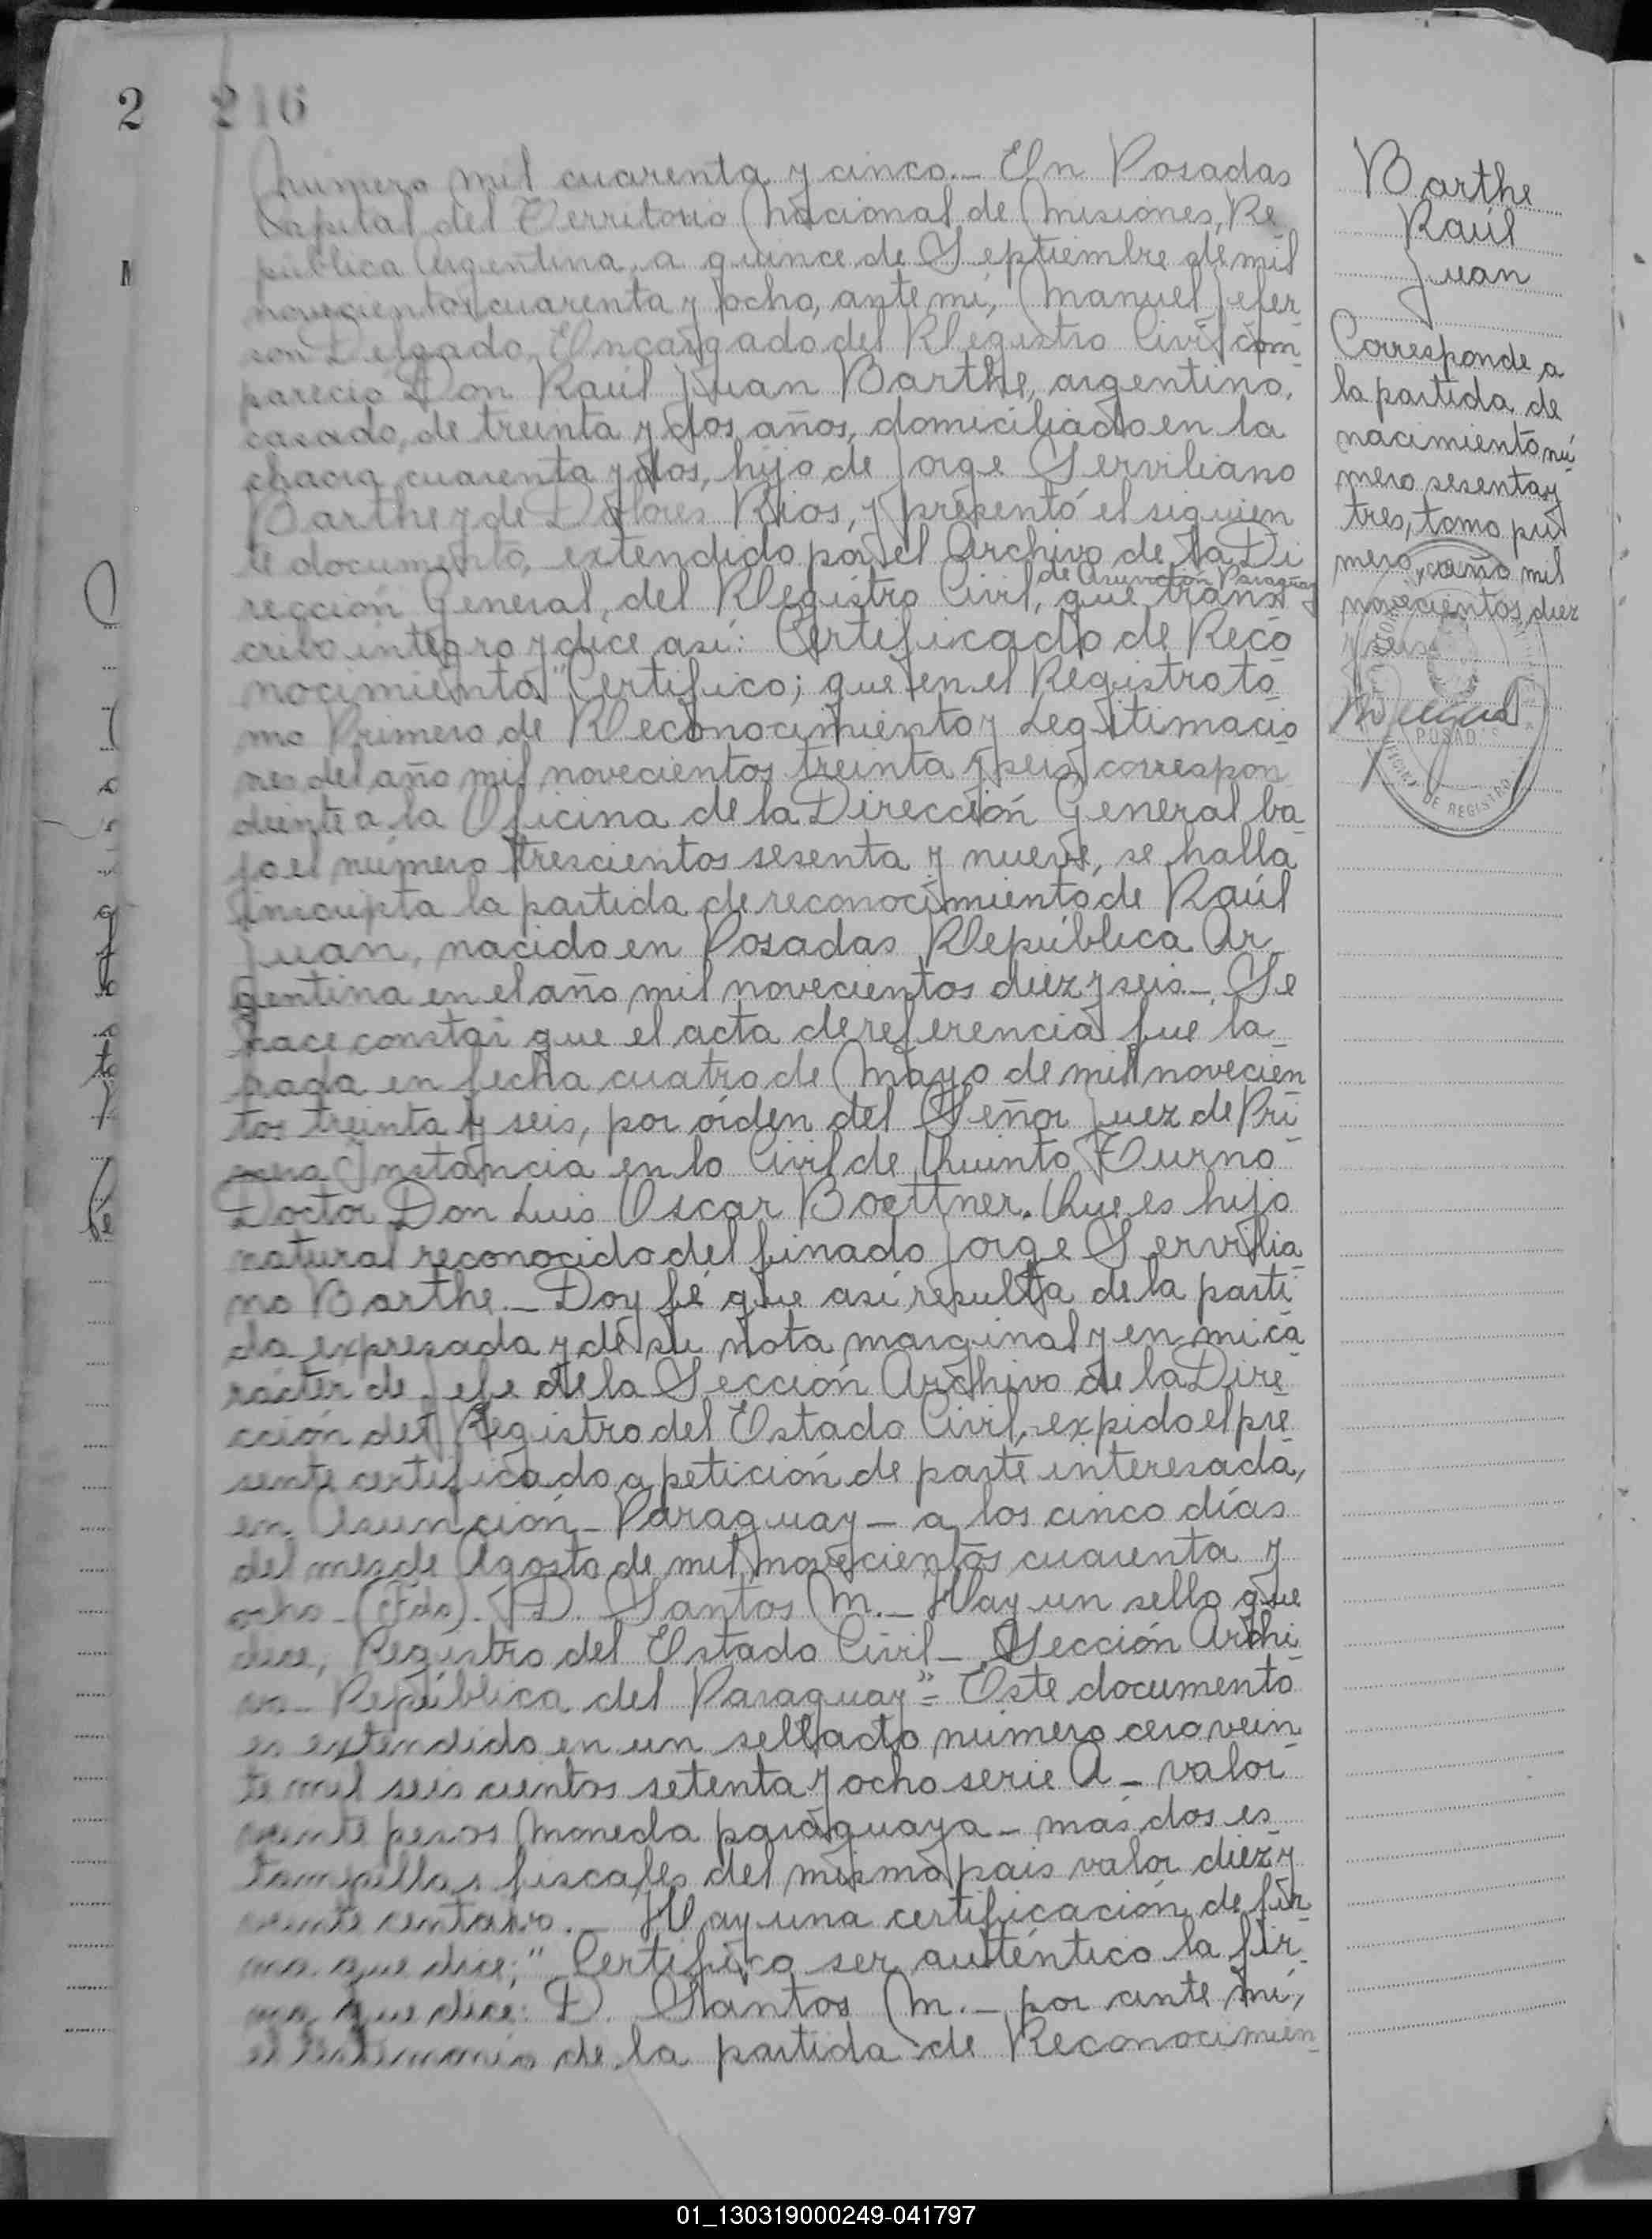 2
216
Número mil cuarenta y cinco._ En Posadas
Capital del Territorio Nacional de Misiones, Re
pública Argentina, a quince de Septiembre de mil
novecientos cuarenta y ocho, ante mí, Manuel Jefer
son Delgado, Encargado del Registro Civil com
pareció Don Raúl Juan Barthe, argentino,
casado, de treinta y dos años, domiciliado en la
chacra cuarenta y dos, hijo de Jorge Serviliano
Barthe y de Dolores Rios, y presentó el siguien
te documento, extendido por el Archivo de la Di
de Asunción Paraguay
rección General, del Registro Civil, que trans
cribo integro y dice así: Certificado de Reco
nocimiento "Certifico; que en el Registro to
mo Primero de Reconocimiento y Legitimacio
nes del año mil novecientos treinta y seis correspon
diente a la Oficina de la Dirección General ba
jo el número trescientos sesenta y nueve, se halla
inscripta la partida de reconocimiento de Raúl
Juan, nacido en Posadas República Ar
gentina en el año mil novecientos diez y seis_. Se
hace constar que el acta de referencia fue la
brada en fecha cuatro de Mayo de mil novecien
tos treinta y seis, por orden del Señor Juez de Pri
mera Instancia en lo Civil de Quinto Turno
Doctor Don Luis Oscar Boettner. Que es hijo
natural reconocido del finado Jorge Servilia
no Barthe._ Doy fé que asi resulta de la parti
da expresada y de su nota marginal y en mi ca
rácter de Jefe de la Sección Archivo de la Dire
cción del Registro del Estado Civil, expido el pre
sente certificado a petición de parte interesada,
en Asunción_ Paraguay_ a los cinco días
del mes de Agosto de mil novecientos cuarenta y
ocho_ (Fdo)_ D. Santos M._ Hay un sello que
dice; Registro del Estado Civil_ Sección Archi
vo_ República del Paraguay"= Este documento
es extendido en un sellado número cero vein
te mil seis cientos setenta y ocho serie A_ valor
veinte pesos moneda paraguaya_ más dos es
tampillas fiscales del mismo pais valor diez y
veinte centavo._ Hay una certificación de fir
ma que dice;" Certifico ser auténtico la fir
ma que dice: D. Santos M._ por ante mí,
el testimonio de la partida de Reconocimien
Barthe
Raúl
Juan
Corresponde a
la partida de
nacimiento nú
mero sesenta y
tres, tomo pri
mero, año mil
novecientos diez
y seis
POSADAS
DE REGISTRO
01_130319000249-041797